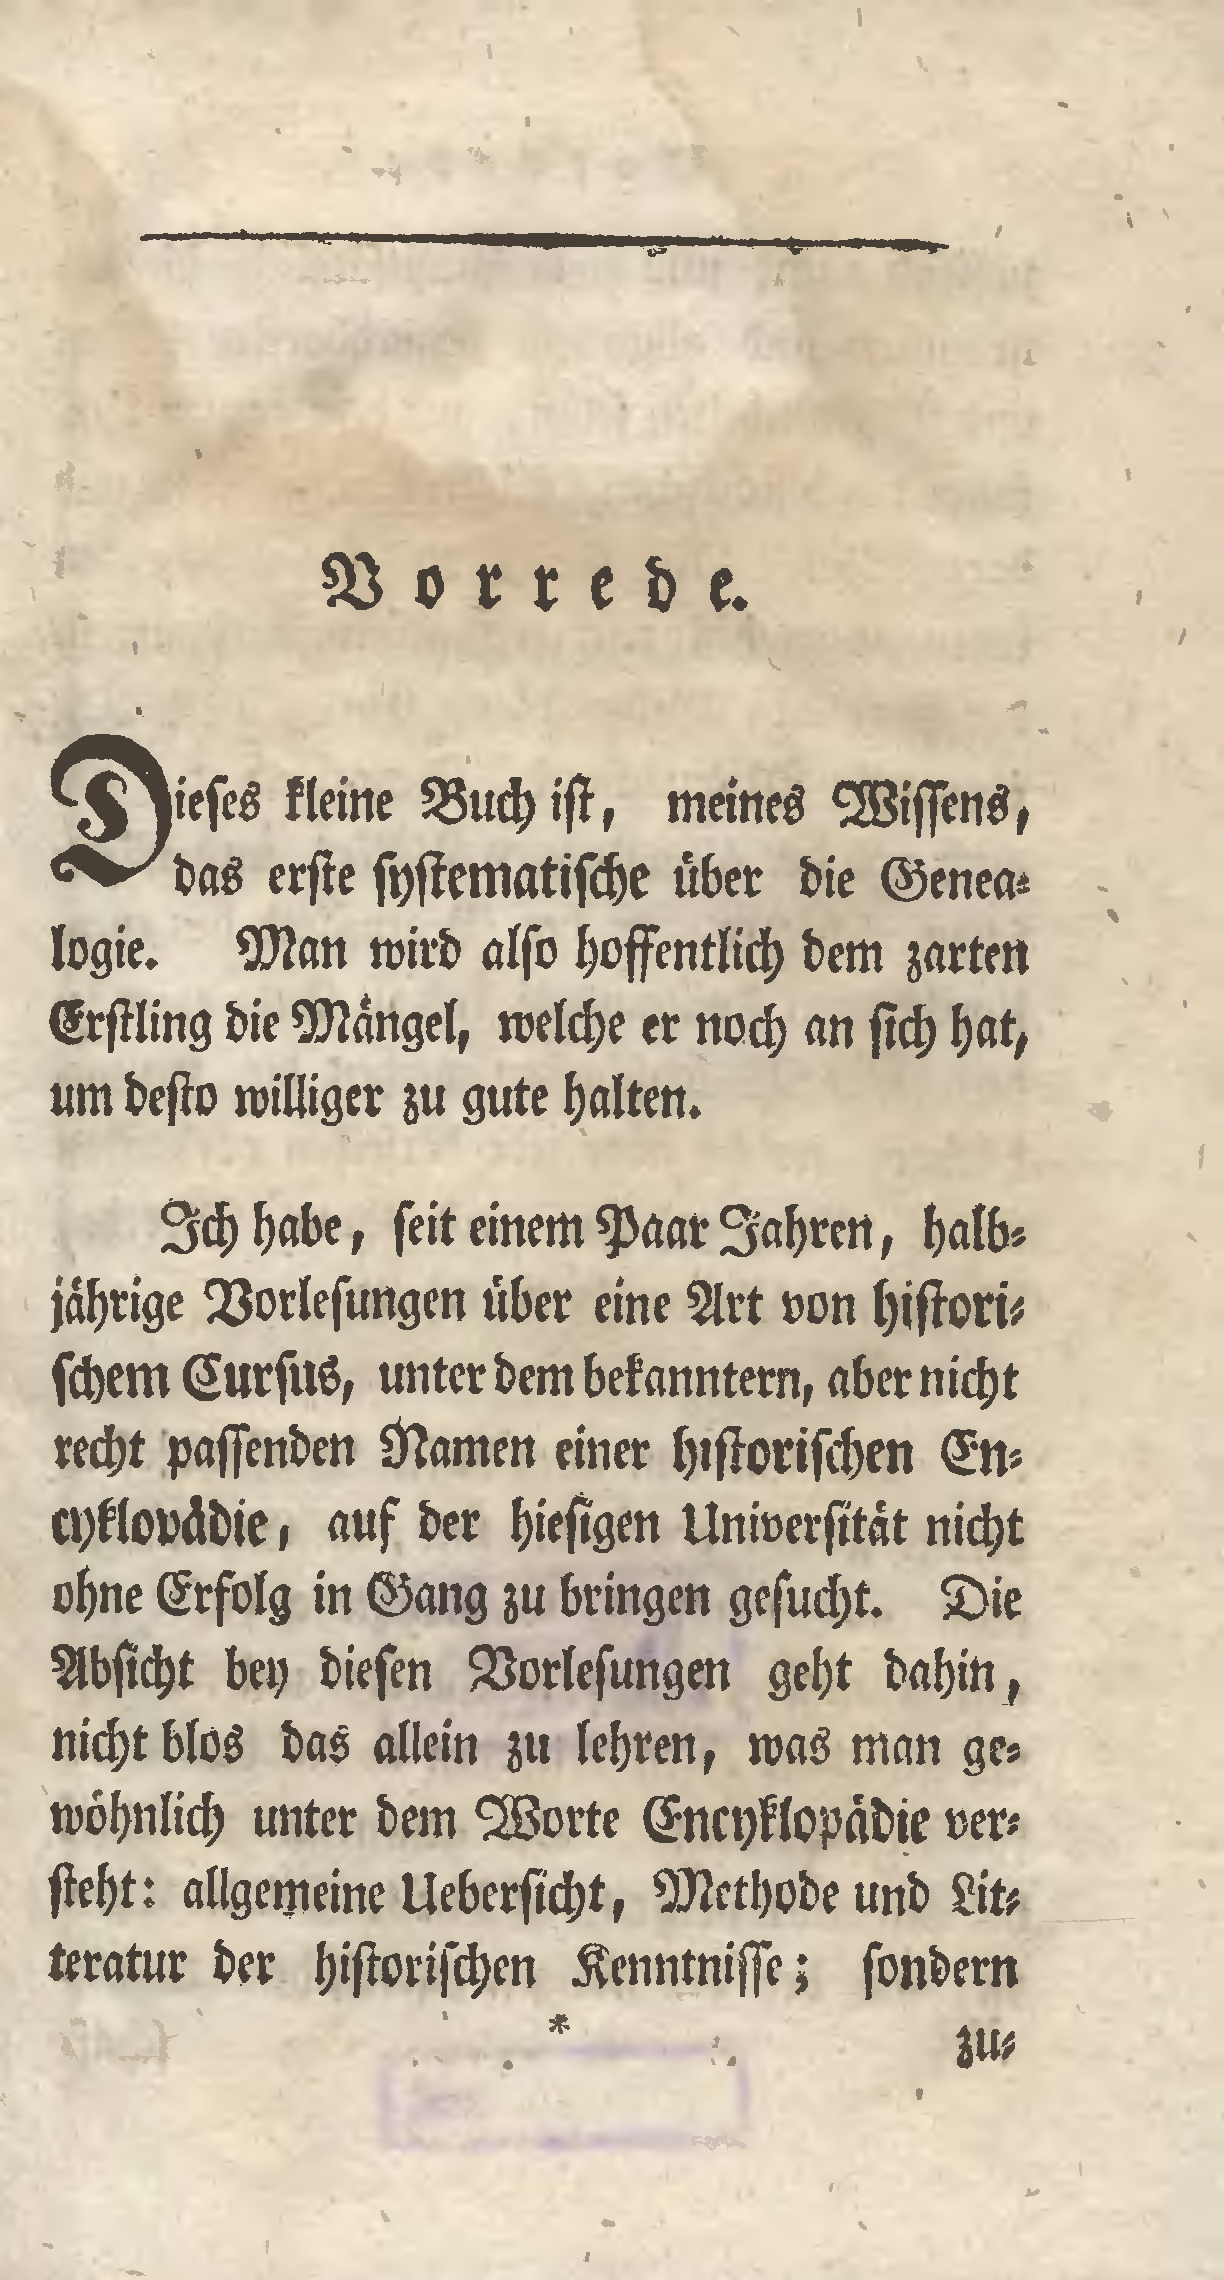 Vorrede.
Dieſes kleine Buch iſt, meines Wiſſens,
das erſte ſyſtematiſche uͤber die Genea⸗
logie. Man wird alſo hoffentlich dem zarten
Erſtling die Maͤngel, welche er noch an ſich hat,
um deſto williger zu gute halten.
Ich habe, ſeit einem Paar Jahren, halb⸗
jaͤhrige Vorleſungen uͤber eine Art von hiſtori⸗
ſchem Curſus, unter dem bekanntern, aber nicht
recht paſſenden Namen einer hiſtoriſchen En⸗
cyklopaͤdie, auf der hieſigen Univerſitaͤt nicht
ohne Erfolg in Gang zu bringen geſucht. Die
Abſicht bey dieſen Vorleſungen geht dahin,
nicht blos das allein zu lehren, was man ge⸗
woͤhnlich unter dem Worte Encyklopaͤdie ver⸗
ſteht: allgemeine Ueberſicht, Methode und Lit⸗
teratur der hiſtoriſchen Kenntniſſe; ſondern
*
zu⸗